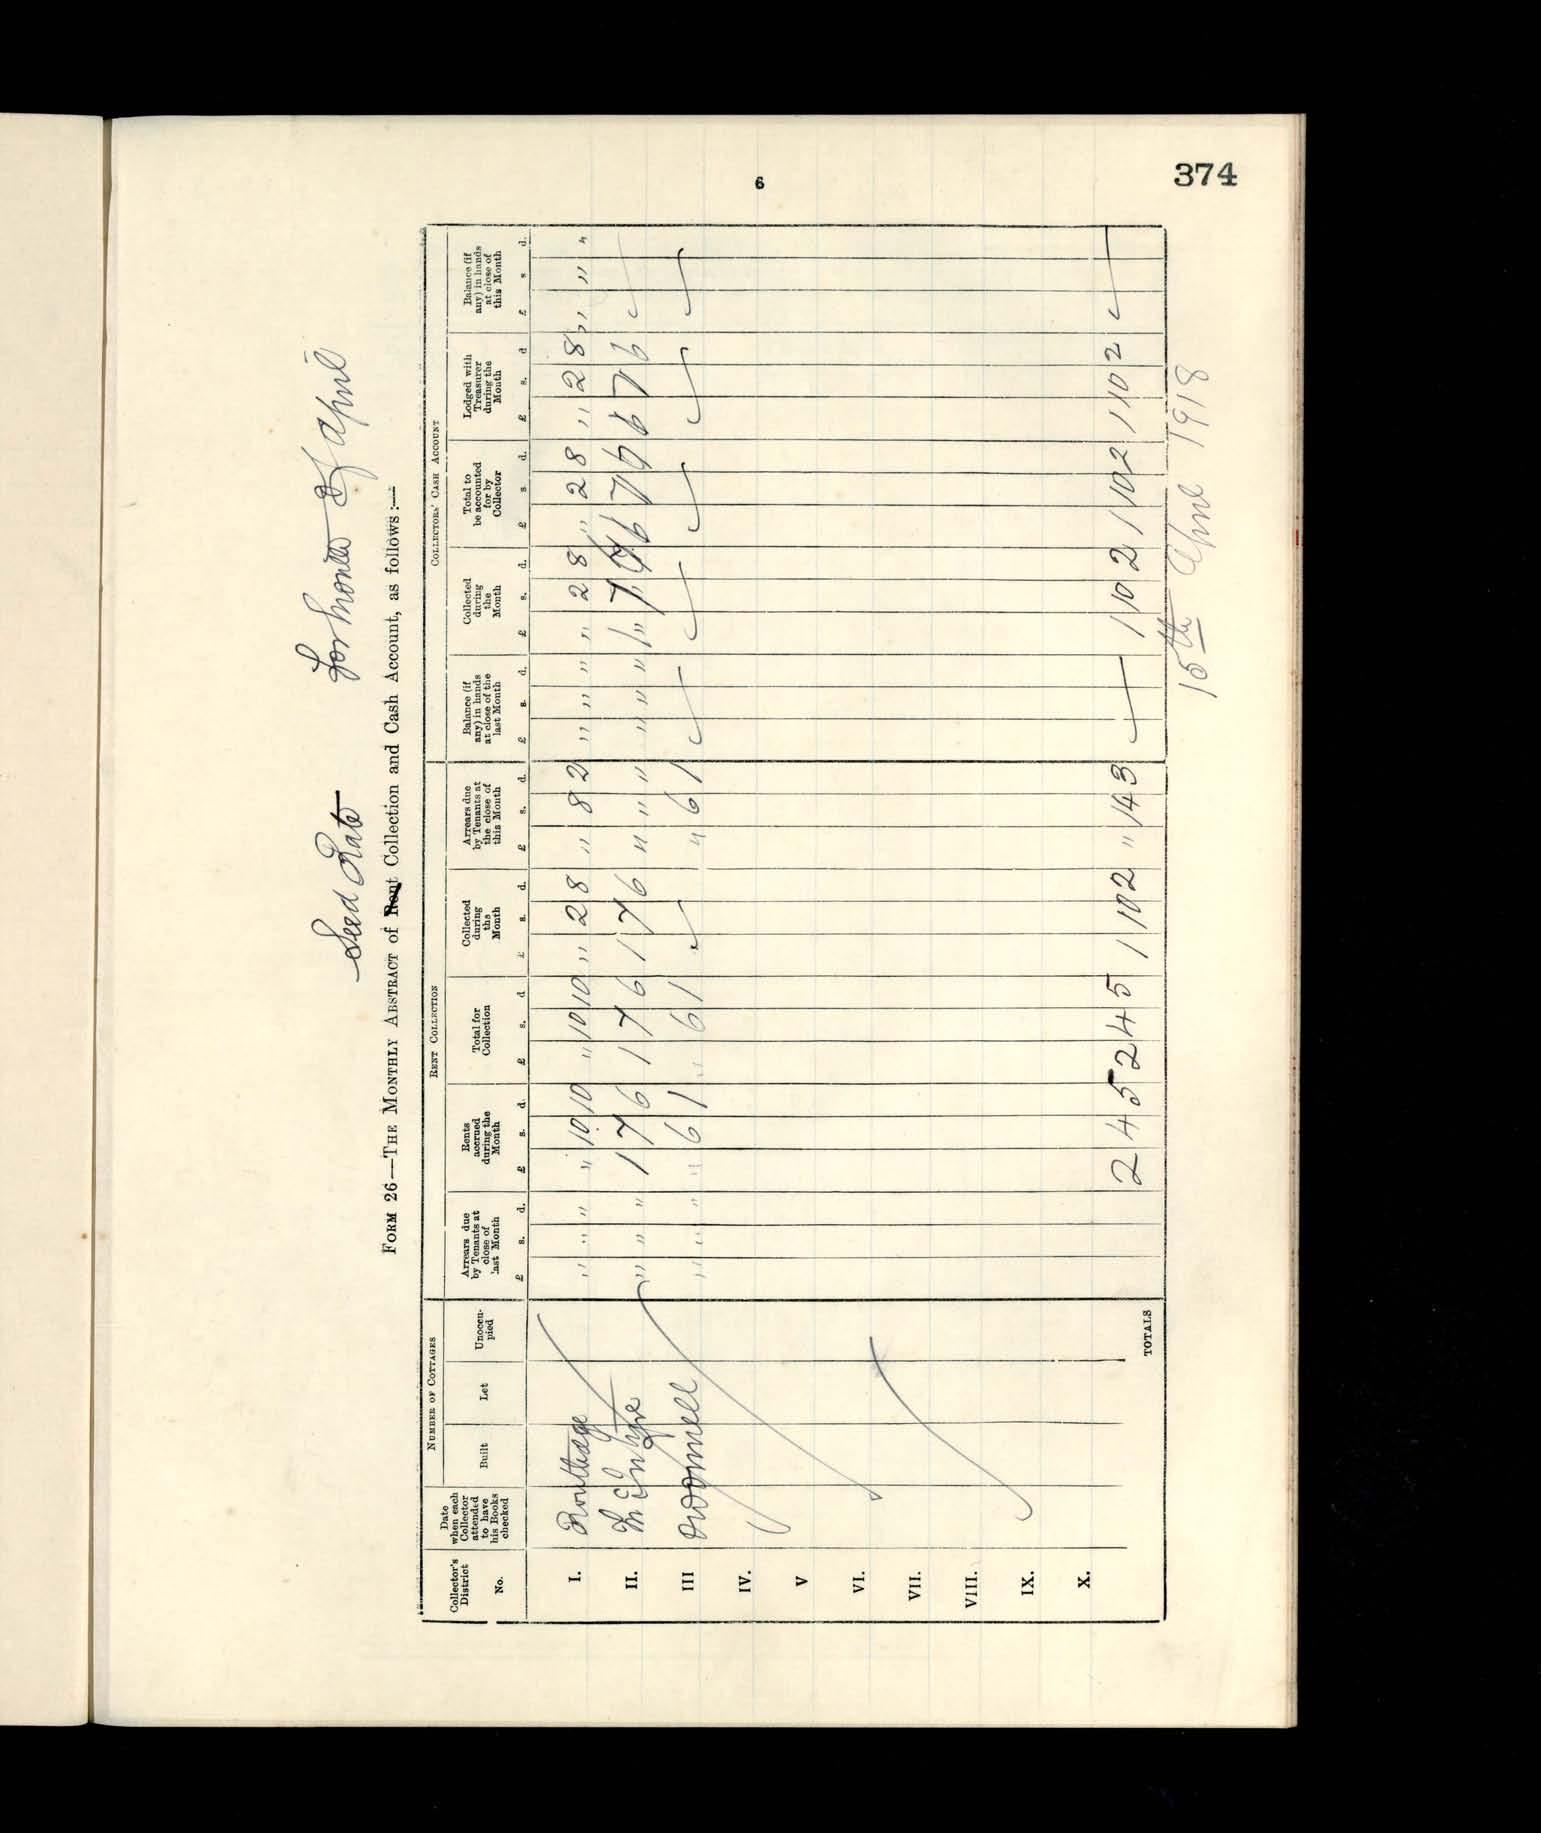 374
6
Seed Rate for month of April
FORM 26—THE MONTHLY ABSTRACT of Rent Collection and Cash Account, as follows :—
NUMBER OF COTTAGES RENT COLLECTION COLLECTORS' CASH ACCOUNT
Collector's District No.
Date when each Collector attended to have his Books checked
Built
Let
Unoccupied
Arrears due by Tenants at close of last Month
Rents accrued during the Month
Total for Collection
Collected during the Month
Arrears due by Tenants at the close of this Month
Balance (if any) in hands at close of the last Month
Collected during the Month
Total to be accounted for by Collector
Lodged with Treasurer during the Month
Balance (if any) in hands at close of this Month
£ s. d. £ s. d. £ s. d. £ s. d. £ s. d. £ s. d. £ s. d. £ s. d. £ s. d. £ s d.
I. Routledge " " " " 10 10 " 10 10 " 2 8 " 8 2 " " " " 2 8 " 2 8 " 2 8 " " "
II. McEntyre " " " 1 7 6 1 7 6 1 7 6 " " " " " " 1 7 6 7 6 7 6
III O'Donnell " " " " 6 1 " 6 1 " 6 1
IV.
V
VI.
VII.
VIII.
IX.
X.
TOTALS 2 4 5 2 4 5 1 10 2 " 14 3 1 10 2 1 10 2 1 10 2
15th April 1918